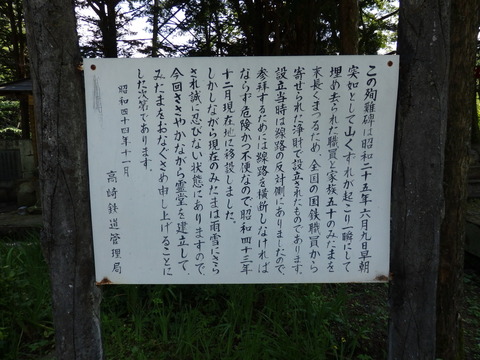 この殉難碑は昭和二十五年六月九日早朝
突如として山くずれが起こり一瞬にして
埋め去られた職員と家族五十のみたまを
末長くまつるため全国の国鉄職員から
寄せられた浄財で設立されたものであります。
設立当時は線路の反対側にありましたので、
参拝するためには線路を横断しなければ
ならず危険かつ不便なので昭和四十三年
十二月現在地に移設しました。
しかしながら現在のみたまは雨雪にさら
され誠に忍びない状態にありますので、
今回ささやかながら霊堂を建立して、
みたまをおなぐさめ申し上げることに
した次第であります。
昭和四十四年十一月
高崎鉄道管理局